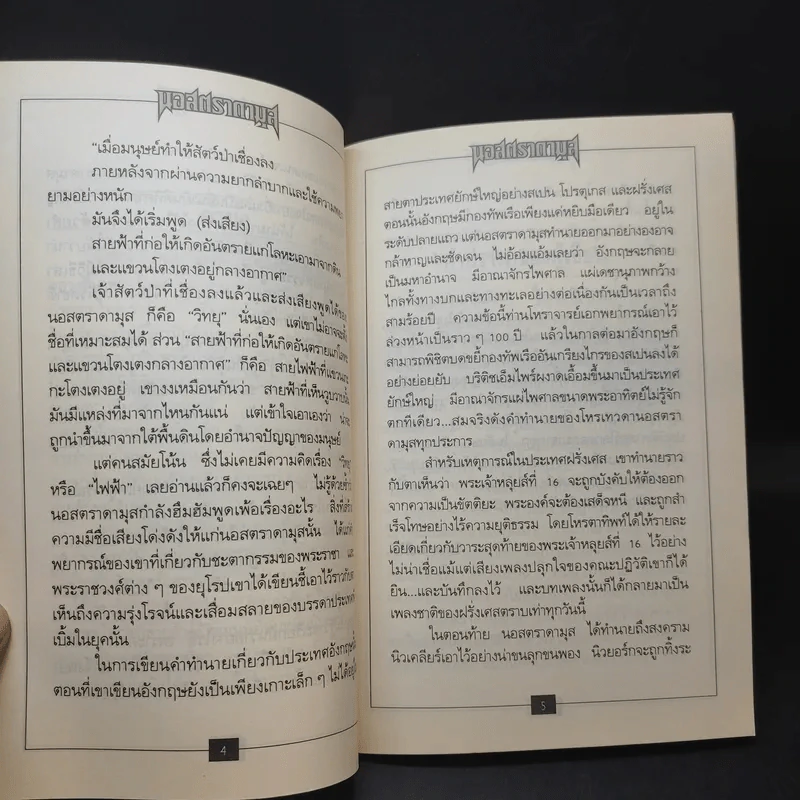 นอสตราดามุส
“เมื่อมนุษย์ทำให้สัตว์ป่าเชื่องลง
ภายหลังจากผ่านความยากลำบากและใช้ความพยา
ยามอย่างหนัก
มันจึงได้เริ่มพูด (ส่งเสียง)
สายฟ้าที่ก่อให้เกิดอันตรายแก่โลหะเอามาจากดิน
และแขวนโตงเตงอยู่กลางอากาศ”
เจ้าสัตว์ป่าที่เชื่องลงแล้วและส่งเสียงพูดได้ของ
นอสตราดามุส ก็คือ “วิทยุ” นั่นเอง แต่เขาไม่อาจจะตั้ง
ชื่อที่เหมาะสมได้ ส่วน “สายฟ้าที่ก่อให้เกิดอันตรายแก่โลหะ
และแขวนโตงเตงกลางอากาศ” ก็คือ สายไฟฟ้าที่แขวน
กะโตงเตงอยู่ เขางงเหมือนกันว่า สายฟ้าที่เห็นวูบวาบนั้น
มันมีแหล่งที่มาจากไหนกันแน่ แต่เข้าใจเอาเองว่า น่าจะ
ถูกนำขึ้นมาจากใต้พื้นดินโดยอำนาจปัญญาของมนุษย์
แต่คนสมัยโน้น ซึ่งไม่เคยมีความคิดเรื่อง “วิทยุ”
หรือ “ไฟฟ้า” เลยอ่านแล้วก็คงจะเฉยๆ ไม่รู้ด้วยซ้ำว่า
นอสตราดามุสกำลังฮึมฮัมพูดเพ้อเรื่องอะไร สิ่งที่สร้าง
ความมีชื่อเสียงโด่งดังให้แก่นอสตราดามุสนั้น ได้แก่คำ
พยากรณ์ของเขาที่เกี่ยวกับชะตากรรมของพระราชา และ
พระราชวงศ์ต่าง ๆ ของยุโรปเขาได้เขียนชี้เอาไว้ราวกับตา
เห็นถึงความรุ่งโรจน์และเสื่อมสลายของบรรดาประเทศ
เบิ้มในยุคนั้น
ในการเขียนคำทำนายเกี่ยวกับประเทศอังกฤษนั้น
ตอนที่เขาเขียนอังกฤษยังเป็นเพียงเกาะเล็ก ๆ ไม่ได้อยู่ใน
4
นอสตราดามุส
สายตาประเทศยักษ์ใหญ่อย่างสเปน โปรตุเกส และฝรั่งเศส
ตอนนั้นอังกฤษมีกองทัพเรือเพียงแค่หยิบมือเดียว อยู่ใน
ระดับปลายแถว แต่นอสตราดามุสทำนายออกมาอย่างองอาจ
กล้าหาญและชัดเจน ไม่อ้อมแอ้มเลยว่า อังกฤษจะกลาย
เป็นมหาอำนาจ มีอาณาจักรไพศาล แผ่เดชานุภาพกว้าง
ไกลทั้งทางบกและทางทะเลอย่างต่อเนื่องกันเป็นเวลาถึง
สามร้อยปี ความข้อนี้ท่านโหราจารย์เอกพยากรณ์เอาไว้
ล่วงหน้าเป็นราว ๆ 100 ปี แล้วในกาลต่อมาอังกฤษก็
สามารถพิชิตบดขยี้กองทัพเรืออันเกรียงไกรของสเปนลงได้
อย่างย่อยยับ บริติชเอ็มไพร์ผงาดเอื้อมขึ้นมาเป็นประเทศ
ยักษ์ใหญ่ มีอาณาจักรแผ่ไพศาลขนาดพระอาทิตย์ไม่รู้จัก
ตกทีเดียว...สมจริงดังคำทำนายของโหรเทวดานอสตรา
ดามุสทุกประการ
สำหรับเหตุการณ์ในประเทศฝรั่งเศส เขาทำนายราว
กับตาเห็นว่า พระเจ้าหลุยส์ที่ 16 จะถูกบังคับให้ต้องออก
จากความเป็นขัตติยะ พระองค์จะต้องเสด็จหนี และถูกสำ
เร็จโทษอย่างไร้ความยุติธรรม โดยโหราทิพท์ได้ให้รายละ
เอียดเกี่ยวกับวาระสุดท้ายของพระเจ้าหลุยส์ที่ 16 ไว้อย่าง
ไม่น่าเชื่อแม้แต่เสียงเพลงปลุกใจของคณะปฏิวัติเขาก็ได้
ยิน...และบันทึกลงไว้ และบทเพลงนั้นก็ได้กลายมาเป็น
เพลงชาติของฝรั่งเศสตราบเท่าทุกวันนี้
ในตอนท้าย นอสตราดามุส ได้ทำนายถึงสงคราม
นิวเคลียร์เอาไว้อย่างน่าขนลุกขนพอง นิวยอร์กจะถูกทิ้งระ
5